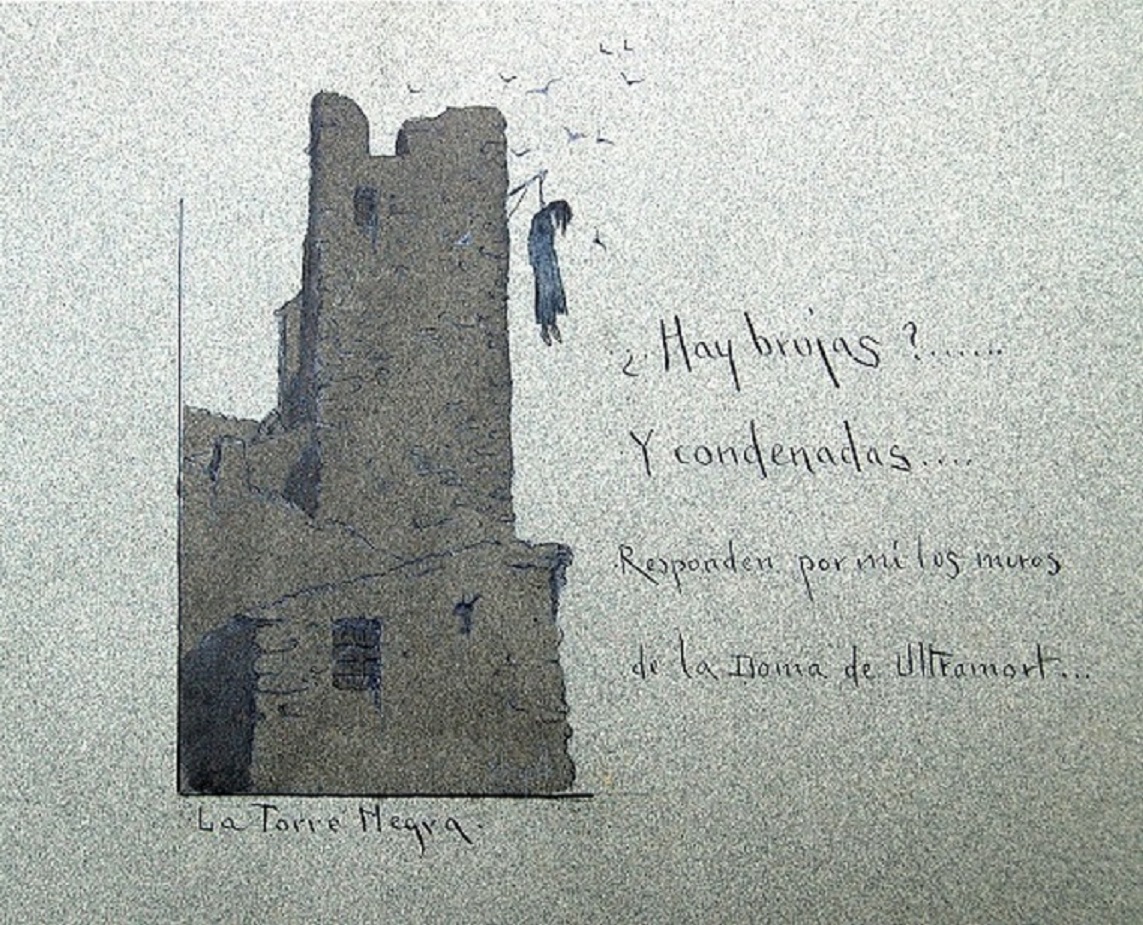 ¿Hay brujas?......
Y condenadas....
Responden por mí los muros
de la Doma de Ultramort...
La Torre Negra.